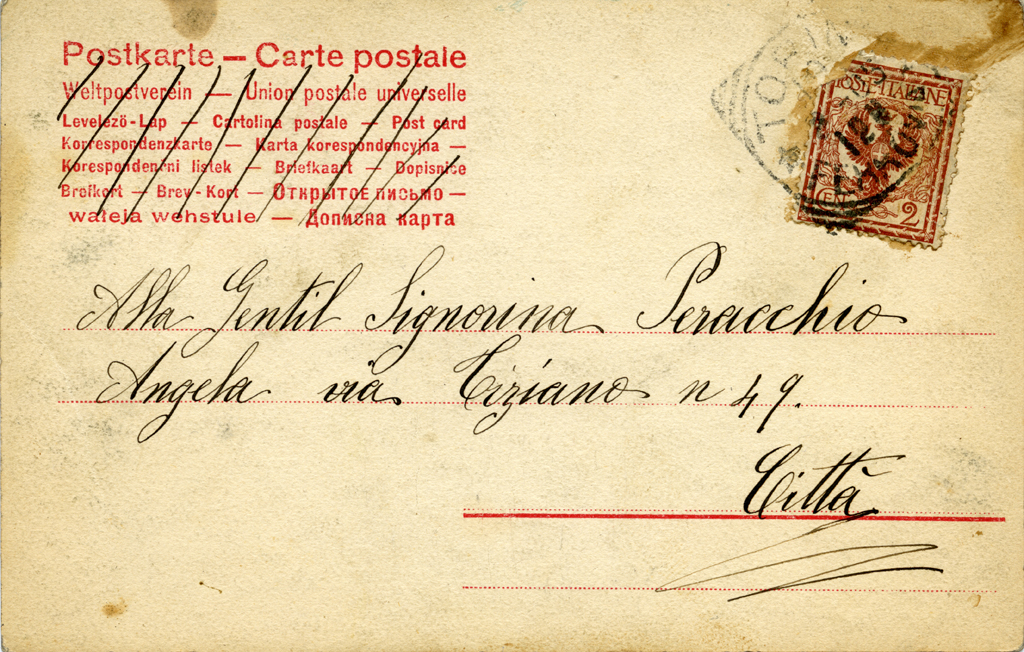 Postkarte — Carte postale
Weltpostverein — Union postale universelle
Levelezö-Lap — Cartolina postale — Post card
Korrespondenzkarte — Karta korespondencyjna —
Korespondenčni listek — Briefkaart — Dopisnice
Brefkort — Brev-Kort — Открытое письмо —
waleja wehstule — Дописна карта
TORINO
POSTE ITALIANE
CEN. 2
Alla Gentil Signorina Peracchio
Angela via Tiziano n 49.
Città